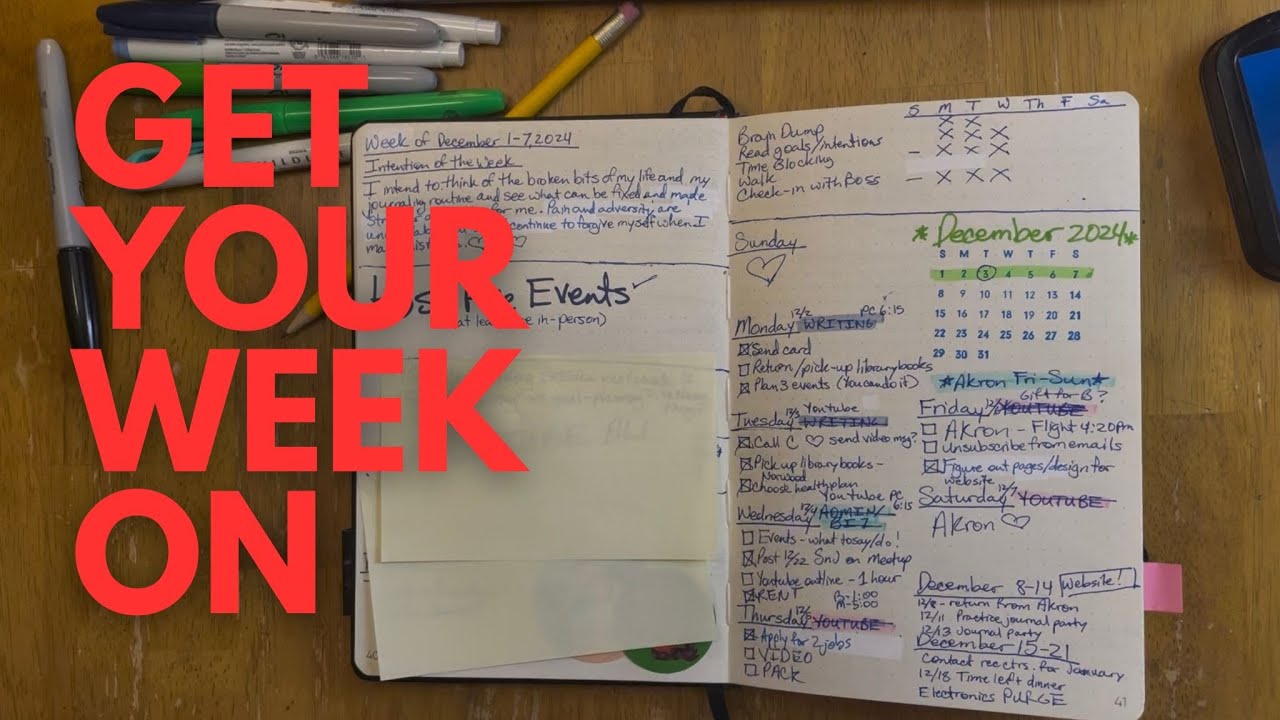 GET
YOUR
WEEK
ON
Week of December 1-7, 2024
Intention of the Week
I intend to think of the broken bits of my life and my
journaling routine and see what can be fixed and made
for me. Pain and adversity are
continue to forgive myself when I
Events ✓
in-person)
S M T W Th F Sa
Brain Dump X X
Read goals/intentions X X X
Time Blocking
Walk — X X X
Check-in with Boss
Sunday
♡
12/2 PC 6:15
Monday WRITING
☒ Send card
☐ Return/pick-up library books
☒ Plan 3 events (You can do it)
12/3 Youtube
Tuesday WRITING
☒ Call C ♡ send video msg?
☒ Pick up library books -
Norwood
☒ Choose health plan
Youtube PC
12/4 6:15
Wednesday ADMIN/
BIZ
☐ Events - what to say/do!
☒ Post 12/22 SnJ on Meetup
☐ Youtube outline - 1 hour
☒ RENT B-1:00
M-5:00
Thursday YOUTUBE
☒ Apply for 2 jobs
☐ VIDEO
☐ PACK
*December 2024*
S M T W T F S
1 2 3 4 5 6 7
8 9 10 11 12 13 14
15 16 17 18 19 20 21
22 23 24 25 26 27 28
29 30 31
*Akron Fri-Sun*
Gift for B?
Friday YOUTUBE
☐ AKRON - Flight 4:20pm
☐ Unsubscribe from emails
☒ Figure out pages/design for
website
Saturday 12/7 YOUTUBE
Akron ♡
December 8-14 Website!
12/8 - return from Akron
12/11 Practice journal party
12/13 Journal party
December 15-21
Contact rec ctrs. for January
12/18 Time left dinner
Electronics PURGE
41